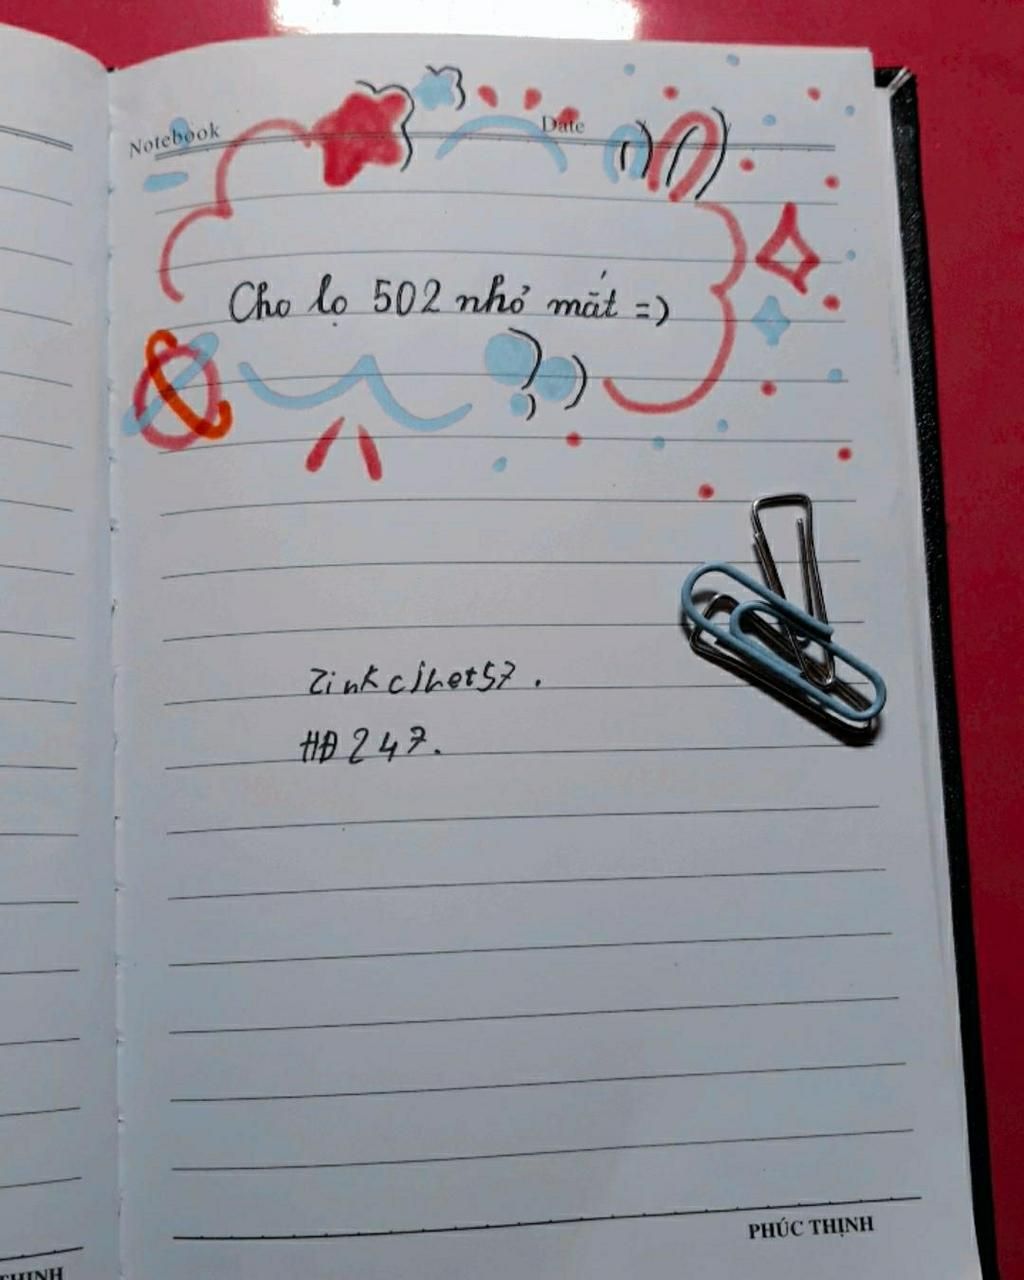 Notebook Date
Cho lọ 502 nhỏ mắt =)
Zinkcjhet57.
HĐ247.
PHÚC THỊNH
THỊNH